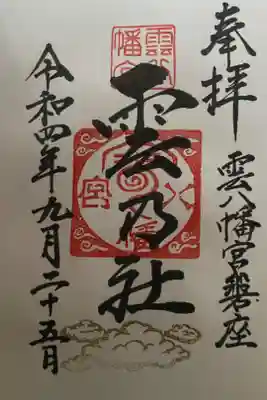 奉拝
雲八幡宮磐座
雲乃社
令和四年九月二十五日
雲八幡宮
八幡宮